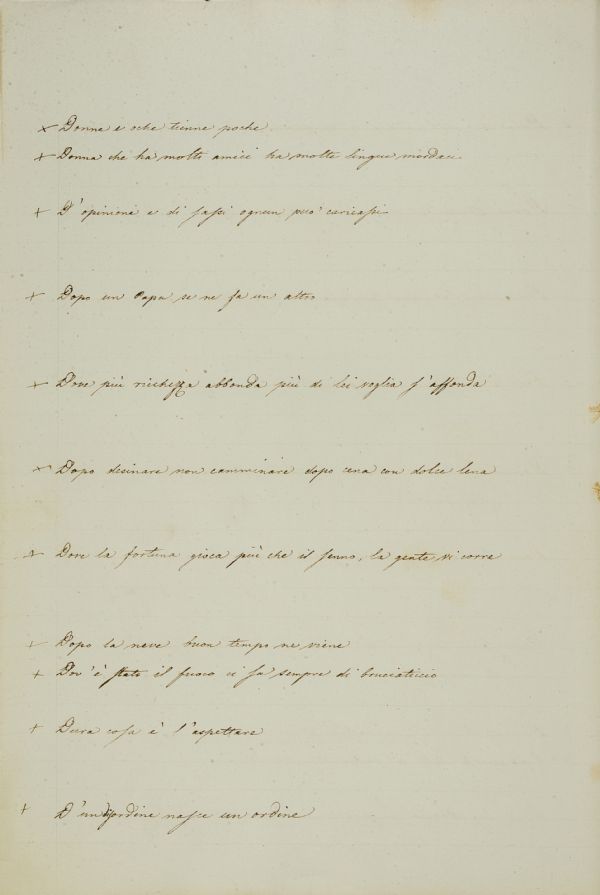 × Donne e oche tienne poche
+ Donna che ha molti amici ha molte lingue mordaci
+ D'opinioni e di sassi ognun può caricassi
+ Dopo un Papa se ne fa un altro
+ Dove più ricchezza abbonda più di lei voglia s'affonda
× Dopo desinare non camminare dopo cena con dolce lena
+ Dove la fortuna gioca più che il senno, la gente vi corre
+ Dopo la neve buon tempo ne viene
+ Dov'è stato il fuoco ci sa sempre di bruciaticcio
+ Dura cosa è l'aspettare
+ D'un disordine nasce un ordine